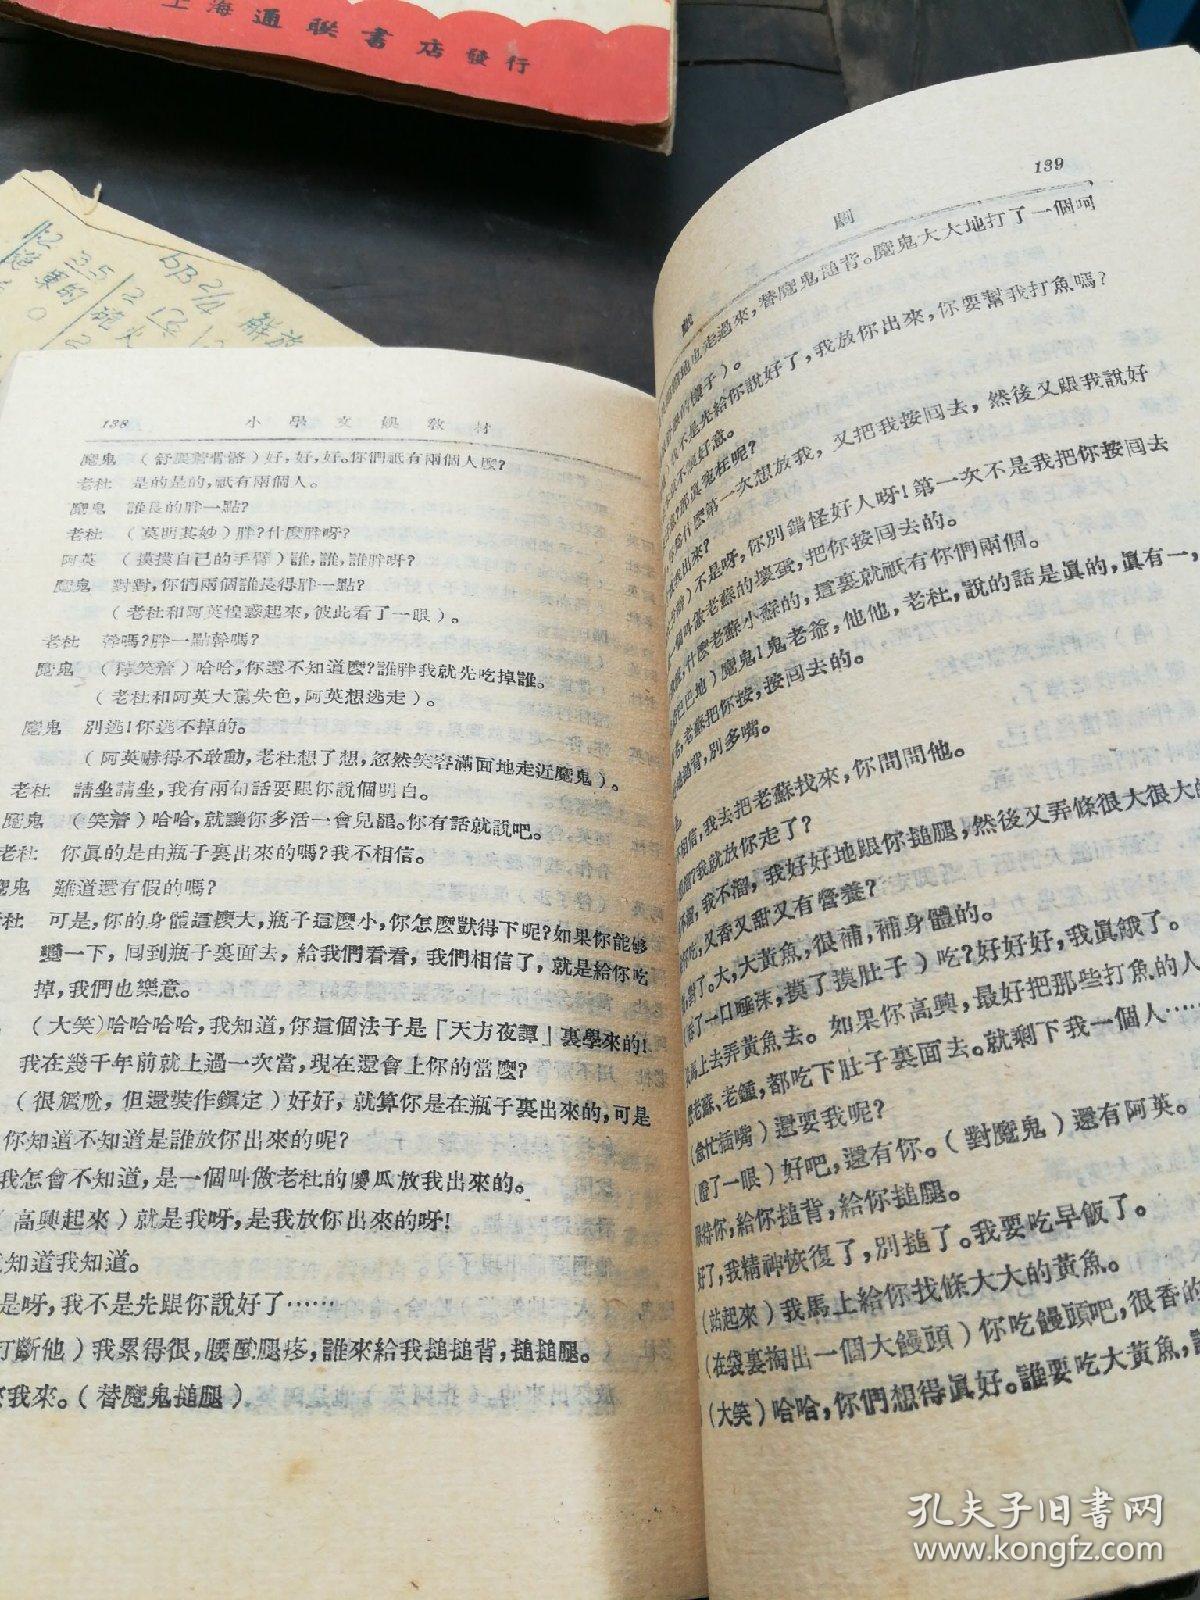 上海通聯書店發行
138 小學文娛教材
魔鬼 （舒展着骨骼）好，好，好。你們祇有兩個人麼？
老杜 是的是的，祇有兩個人。
魔鬼 誰長的胖一點？
老杜 （莫明其妙）胖？什麼胖呀？
阿英 （摸摸自己的手臂）誰，誰，誰胖呀？
魔鬼 對對，你們兩個誰長得胖一點？
（老杜和阿英惶惑起來，彼此看了一眼）。
老杜 幹嗎？胖一點幹嗎？
魔鬼 （獰笑着）哈哈，你還不知道麼？誰胖我就先吃掉誰。
（老杜和阿英大駕失色，阿英想逃走）。
魔鬼 別逃！你逃不掉的。
（阿英嚇得不敢動，老杜想了想，忽然笑容滿面地走近魔鬼）。
老杜 請坐請坐，我有兩句話要跟你說個明白。
魔鬼 （笑着）哈哈，就讓你多活一會兒罷。你有話就說吧。
老杜 你眞的是由瓶子裏出來的嗎？我不相信。
魔鬼 難道還有假的嗎？
老杜 可是，你的身體這麼大，瓶子這麼小，你怎麼獃得下呢？如果你能够
變一下，回到瓶子裏面去，給我們看看，我們相信了，就是給你吃
掉，我們也樂意。
（大笑）哈哈哈哈，我知道，你這個法子是「天方夜譚」裏學來的！
我在幾千年前就上過一次當，現在還會上你的當麼？
（很尷尬，但還裝作鎭定）好好，就算你是在瓶子裏出來的，可是
你知道不知道是誰放你出來的呢？
我怎會不知道，是一個叫做老杜的傻瓜放我出來的。
（高興起來）就是我呀，是我放你出來的呀！
知道我知道。
是呀，我不是先跟你說好了……
打斷他）我累得很，腰酸腿疼，誰來給我搥搥背，搥搥腿。
我來。（替魔鬼搥腿）
戲劇 139
地也走過來，替魔鬼搥背。魔鬼大大地打了一個呵
樣子）。
我不是先給你說好了，我放你出來，你要幫我打魚嗎？
不懷好意。
那眞寃枉呢？
爲什麼第一次想放我，又把我按回去，然後又跟我說好
放我出來？
）不是呀，你別錯怪好人呀！第一次不是我把你按回去
一個叫做老蘇的壞蛋，把你按回去的。
，什麼老蘇小蘇的，這裏就祇有你們兩個。
巴巴地）魔鬼！鬼老爺，他他，老杜，說的話是眞的，眞有一，
老蘇把你按，按回去的。
搥背，別多嘴。
不相信，我去把老蘇找來，你問問他。
溜了？我就放你走了？
不溜，我不溜，我好好地跟你搥腿，然後又弄條很大很大的
好吃，又香又甜又有營養？
對了。大，大黃魚，很補，補身體的。
了一口唾沫，摸了摸肚子）吃？好好好，我眞餓了。
馬上去弄黃魚去。如果你高興，最好把那些打魚的人
老蘇、老鍾，都吃下肚子裏面去。就剩下我一個人……
（急忙插嘴）還要我呢？
（瞪了一眼）好吧，還有你。（對魔鬼）還有阿英。
服侍你，給你搥背，給你搥腿。
好了，我精神恢復了，別搥了。我要吃早飯了。
（站起來）我馬上給你找條大大的黃魚。
（在袋裏掏出一個大饅頭）你吃饅頭吧，很香的
（大笑）哈哈，你們想得眞好。誰要吃大黃魚，
孔夫子旧书网
www.kongfz.com